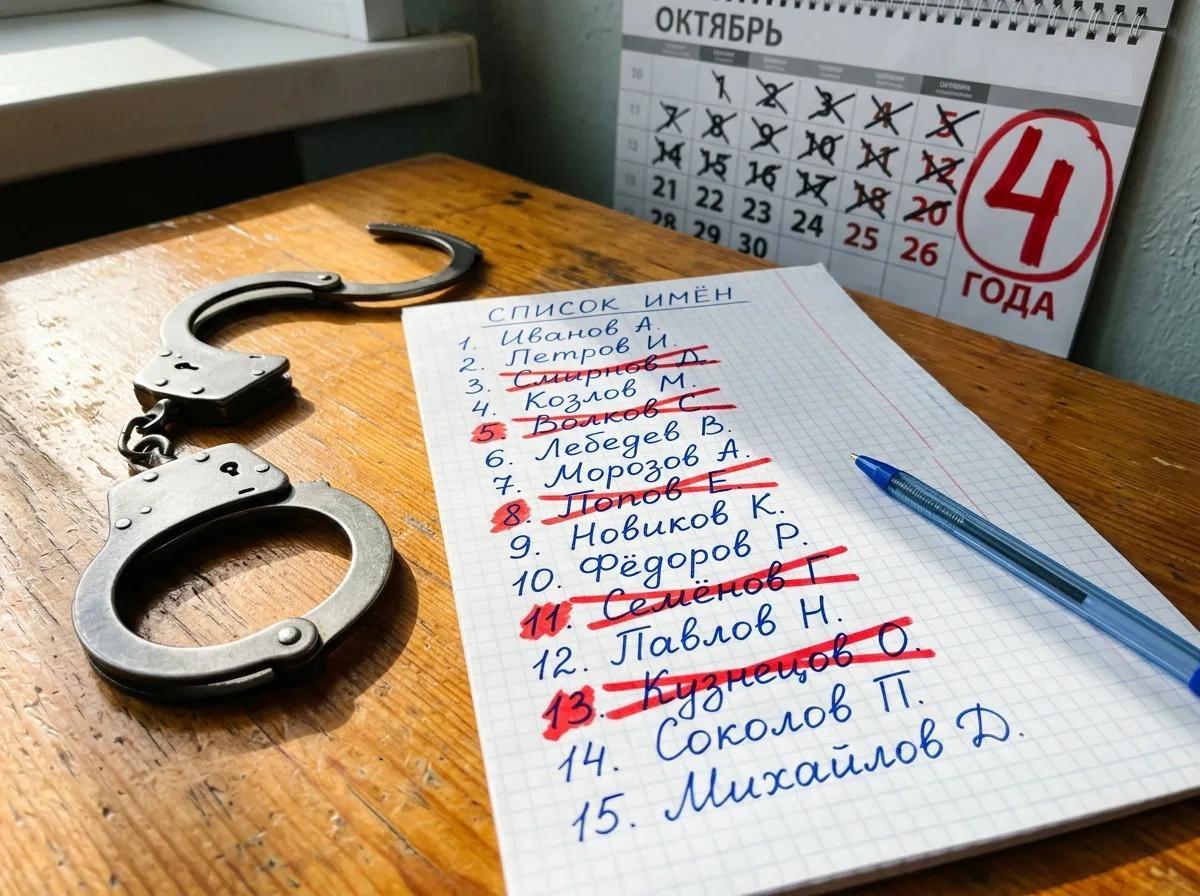 ОКТЯБРЬ
10 1 2 3 4 5
11 7 8 9 10 11 12
12 14 15 16 17 18 20
13 21 22 23 24 25 26
28 29 30
4
ГОДА
СПИСОК ИМЁН
1. Иванов А.
2. Петров И.
3. Смирнов Д.
4. Козлов М.
5. Волков С.
6. Лебедев В.
7. Морозов А.
8. Попов Е.
9. Новиков К.
10. Фёдоров Р.
11. Семёнов Г
12. Павлов Н.
13. Кузнецов О.
14. Соколов П.
15. Михайлов Д.